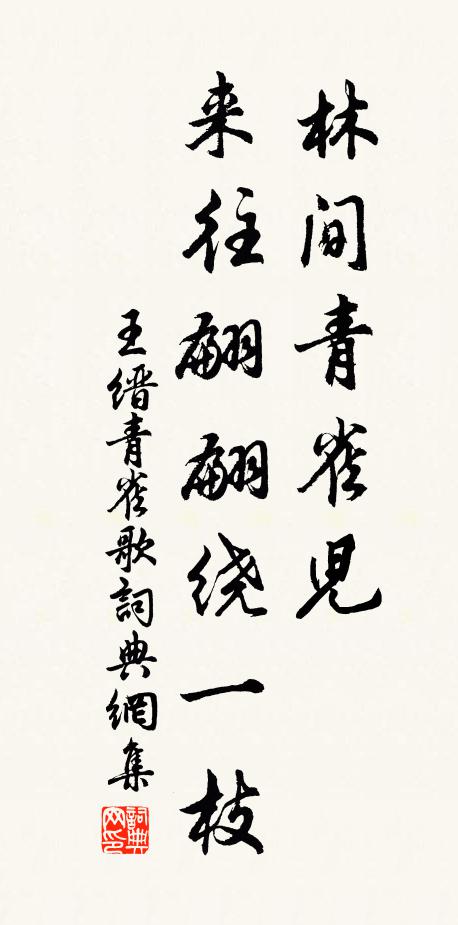 林间青雀児
来往翩翩绕一枝
王缙青雀歌詞典網集
詞典网印